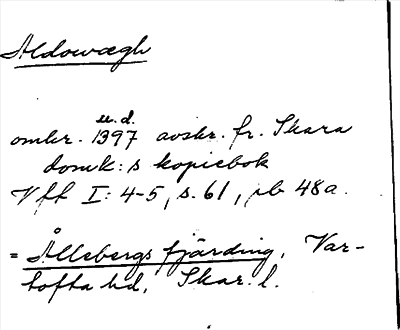 Aldowægh
u.d.
omkr. 1397 avskr. fr. Skara
domk:s kopiebok
Vff I: 4-5, s. 61, pb 48a.
= Ållebergs fjärding, Var-
tofta hd, Skar. l.